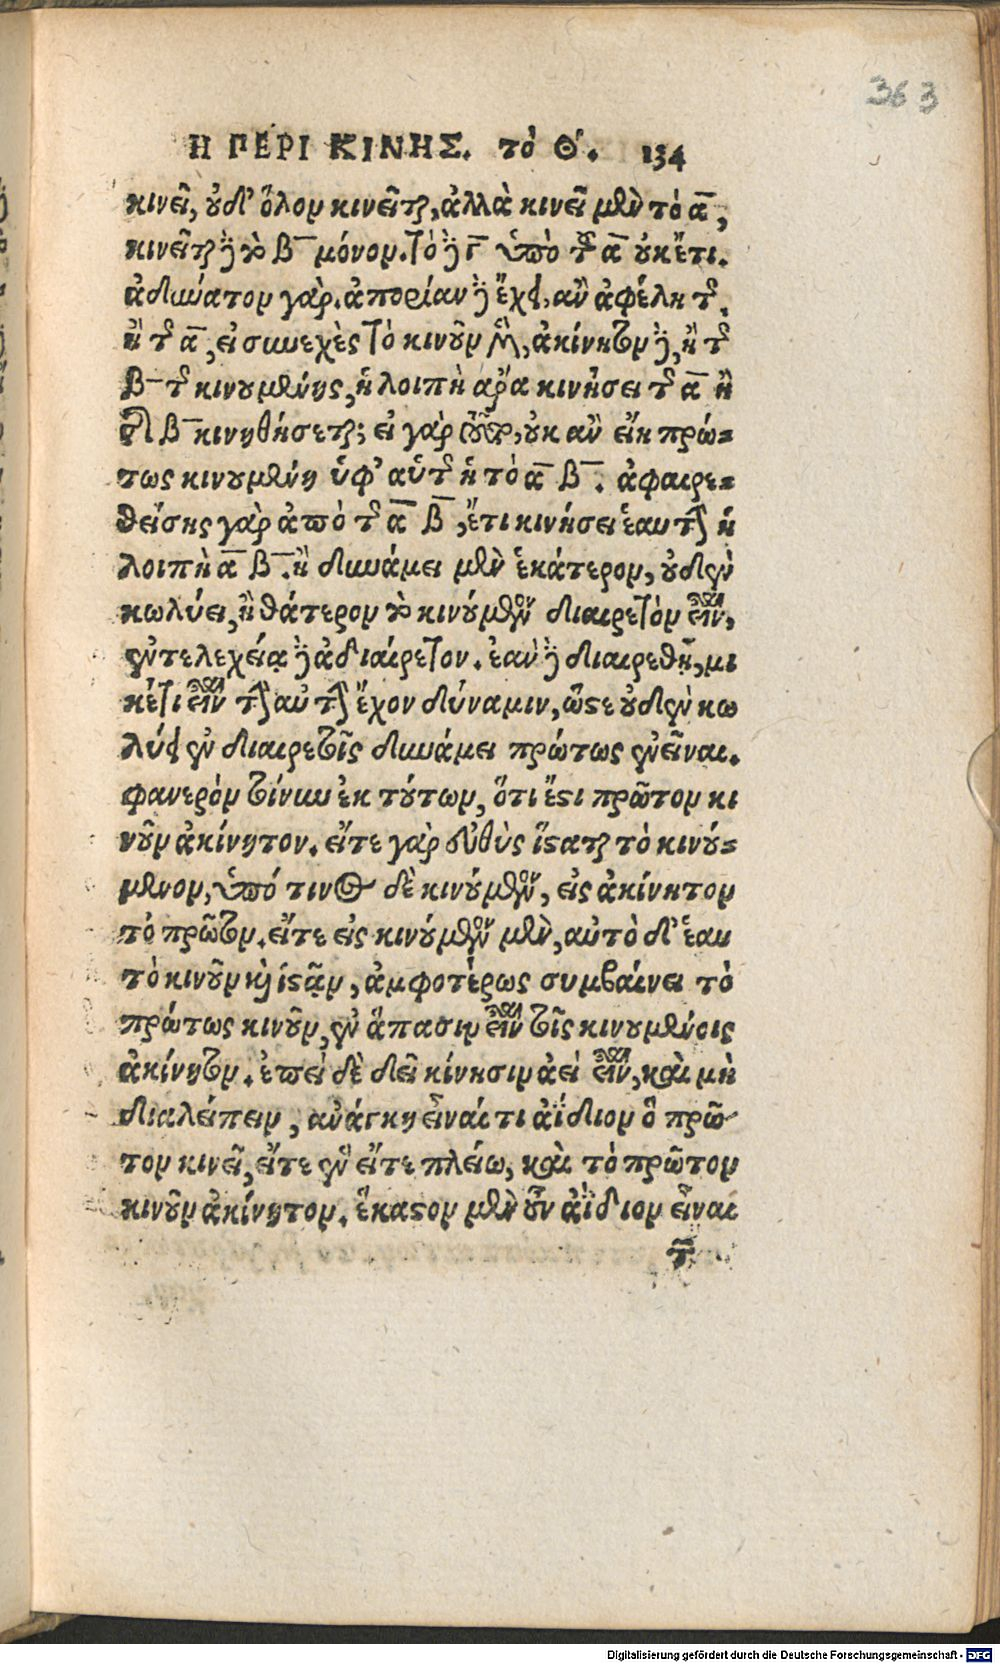 363
Η ΠΕΡΙ ΚΙΝΗΣ. τὸ Θ΄. 134
κινεῖ, οὐδ' ὅλον κινεῖται, ἀλλὰ κινεῖ μὲν τὸ α̅,
κινεῖται δὲ τὸ β̅ μόνον. τὸ δὲ γ̅ ὑπὸ τοῦ α̅ οὐκέτι.
ἀδύνατον γάρ. ἀπορίαν δὲ ἔχει, ἂν ἀφέλη τις.
ἢ τῆς α̅, εἰ συνεχὲς τὸ κινοῦν μὲν, ἀκίνητον δὲ, ἢ τῆς
β̅ τῆς κινουμένης, ἡ λοιπὴ ἆρα κινήσει τῆς α̅ ἢ
τῆς β̅ κινηθήσεται; εἰ γὰρ τοῦτο, οὐκ ἂν εἴη πρώ=
τως κινουμένη ὑφ' αὑτῆς ἡ τὸ α̅ β̅. ἀφαιρε=
θείσης γὰρ ἀπὸ τῆς α̅ β̅, ἔτι κινήσει ἑαυτὴν ἡ
λοιπὴ α̅ β̅. ἢ δυνάμει μὲν ἑκάτερον, οὐδὲν
κωλύει, ἢ θάτερον τὸ κινούμενον διαιρετὸν εἶναι,
ἐντελεχείᾳ δὲ ἀδιαίρετον. ἐὰν δὲ διαιρεθῇ, μι
κέτι εἶναι τὴν αὐτὴν ἔχον δύναμιν, ὥστε οὐδὲν κω
λύει ἐν διαιρετοῖς δυνάμει πρώτως ἐνεῖναι.
φανερὸν τοίνυν ἐκ τούτων, ὅτι ἔστι πρῶτον κι
νοῦν ἀκίνητον. εἴτε γὰρ εὐθὺς ἵσταται τὸ κινού=
μενον, ὑπό τινος δὲ κινούμενον, εἰς ἀκίνητον
τὸ πρῶτον. εἴτε εἰς κινούμενον μὲν, αὐτὸ δ' ἑαυ
τὸ κινοῦν καὶ ἱστᾷν, ἀμφοτέρως συμβαίνει τὸ
πρώτως κινοῦν, ἐν ἅπασιν εἶναι τοῖς κινουμένοις
ἀκίνητον. ἐπεὶ δὲ δεῖ κίνησιν ἀεὶ εἶναι, καὶ μὴ
διαλείπειν, ἀνάγκη εἶναί τι ἀΐδιον ὃ πρῶ
τον κινεῖ, εἴτε ἓν εἴτε πλείω, καὶ τὸ πρῶτον
κινοῦν ἀκίνητον. ἕκαστον μὲν οὖν ἀΐδιον εἶναι
τῶν
Digitalisierung gefördert durch die Deutsche Forschungsgemeinschaft - DFG